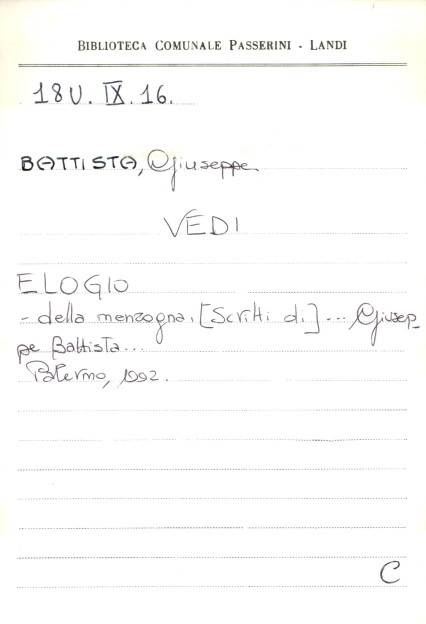 BIBLIOTECA COMUNALE PASSERINI - LANDI
18U. IX. 16.
BATTISTA, Giuseppe
VEDI
ELOGIO
- della menzogna. [Scritti di] ... Giusep
pe Battista...
Palermo, 1992.
C